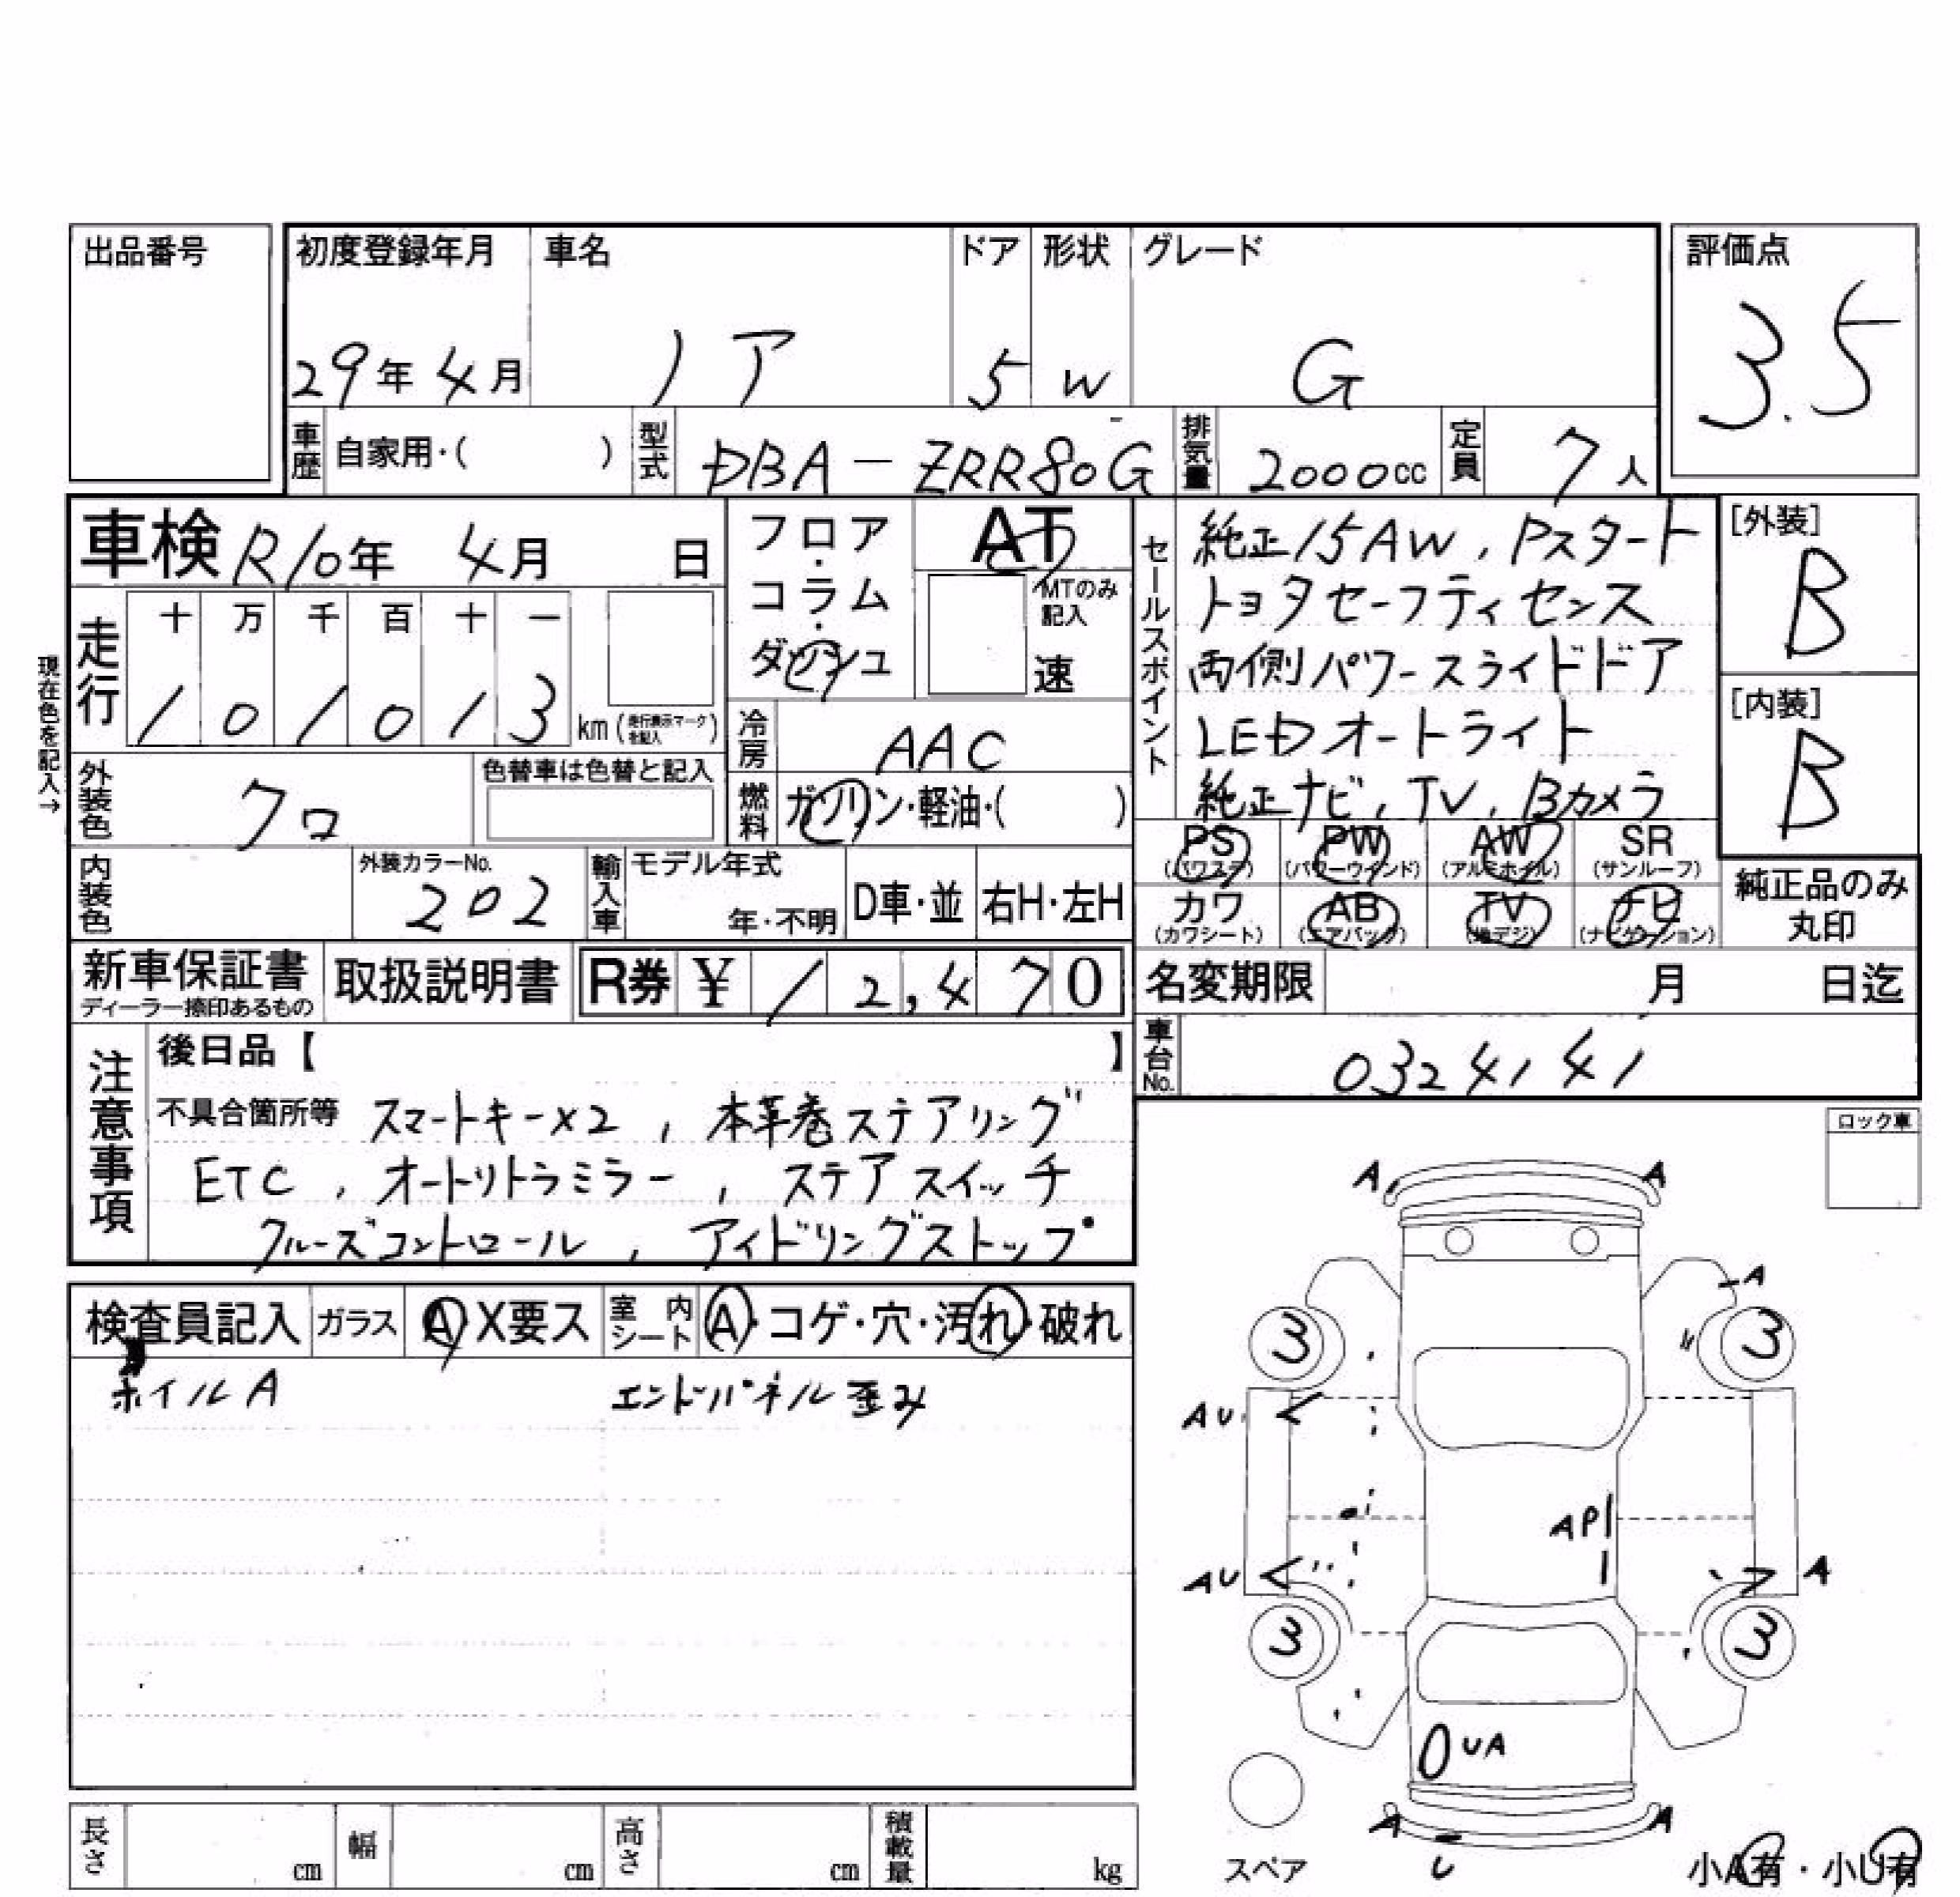 出品番号
初度登録年月 車名 ドア 形状 グレード 評価点
29年 4月 ノア 5 W G 3.5
車歴 自家用・( ) 型式 DBA-ZRR80G 排気量 2000cc 定員 7人
車検 R10年 4月 日
フロア・コラム・ダッシュ
AT
MTのみ記入
速
現在色を記入→
走行 十 万 千 百 十 一
1 0 1 0 1 3 km (走行表示マークを記入)
冷房 AAC
燃料 ガソリン・軽油・( )
外装色 クロ 色替車は色替と記入
内装色 外装カラーNo. 202 輸入車 モデル年式 年・不明 D車・並 右H・左H
セールスポイント
純正15AW, Pスタート
トヨタセーフティセンス
両側パワースライドドア
LEDオートライト
純正ナビ, TV, Bカメラ
[外装]
B
[内装]
B
PS (パワステ) PW (パワーウインド) AW (アルミホイル) SR (サンルーフ)
カワ (カワシート) AB (エアバッグ) TV (地デジ) ナビ (ナビゲーション)
純正品のみ丸印
新車保証書 ディーラー捺印あるもの 取扱説明書 R券 ¥ 12,470
名変期限 月 日迄
車台No. 0324141
注意事項
後日品【 】
不具合箇所等 スマートキー×2 , 本革巻ステアリング
ETC , オートリトラミラー , ステアスイッチ
クルーズコントロール , アイドリングストップ
検査員記入 ガラス A X要ス 室内シート A・コゲ・穴・汚れ・破れ
ホイルA エンドパネル歪み
ロック車
A A
A
3 3
AU
AP
AU A
3 3
UA
A A
U
スペア
小A有・小U有
長さ cm 幅 cm 高さ cm 積載量 kg